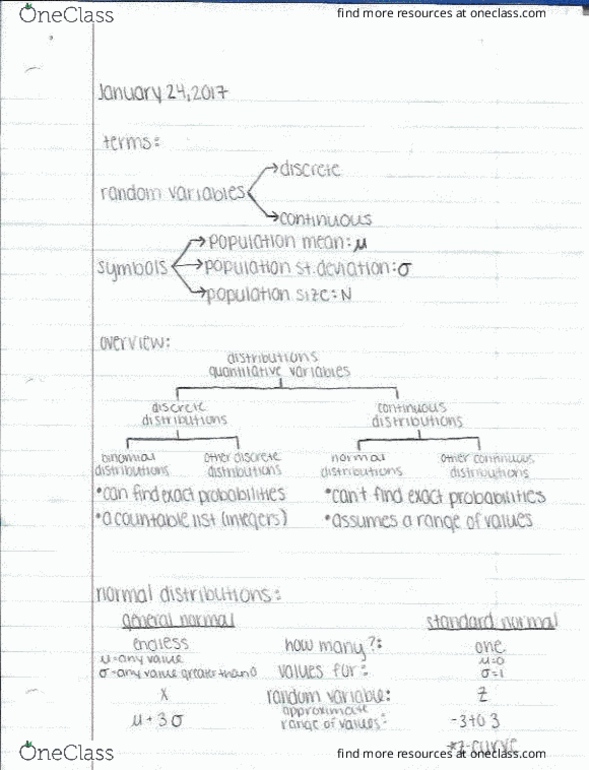 OneClass
find more resources at oneclass.com
January 24, 2017
terms:
random variables → discrete
→ continuous
symbols → population mean: μ
→ population st. deviation: σ
→ population size: N
overview:
distributions
quantitative variables
discrete distributions
continuous distributions
binomial distributions
other discrete distributions
normal distributions
other continuous distributions
• can find exact probabilities
• can't find exact probabilities
• a countable list (integers)
• assumes a range of values
normal distributions:
general normal
standard normal
endless how many?: one
μ=any value
σ=any value greater than 0
values for:
μ=0
σ=1
x random variable: z
μ + 3σ
approximate range of values:
-3 to 3
*z-curve
OneClass
find more resources at oneclass.com